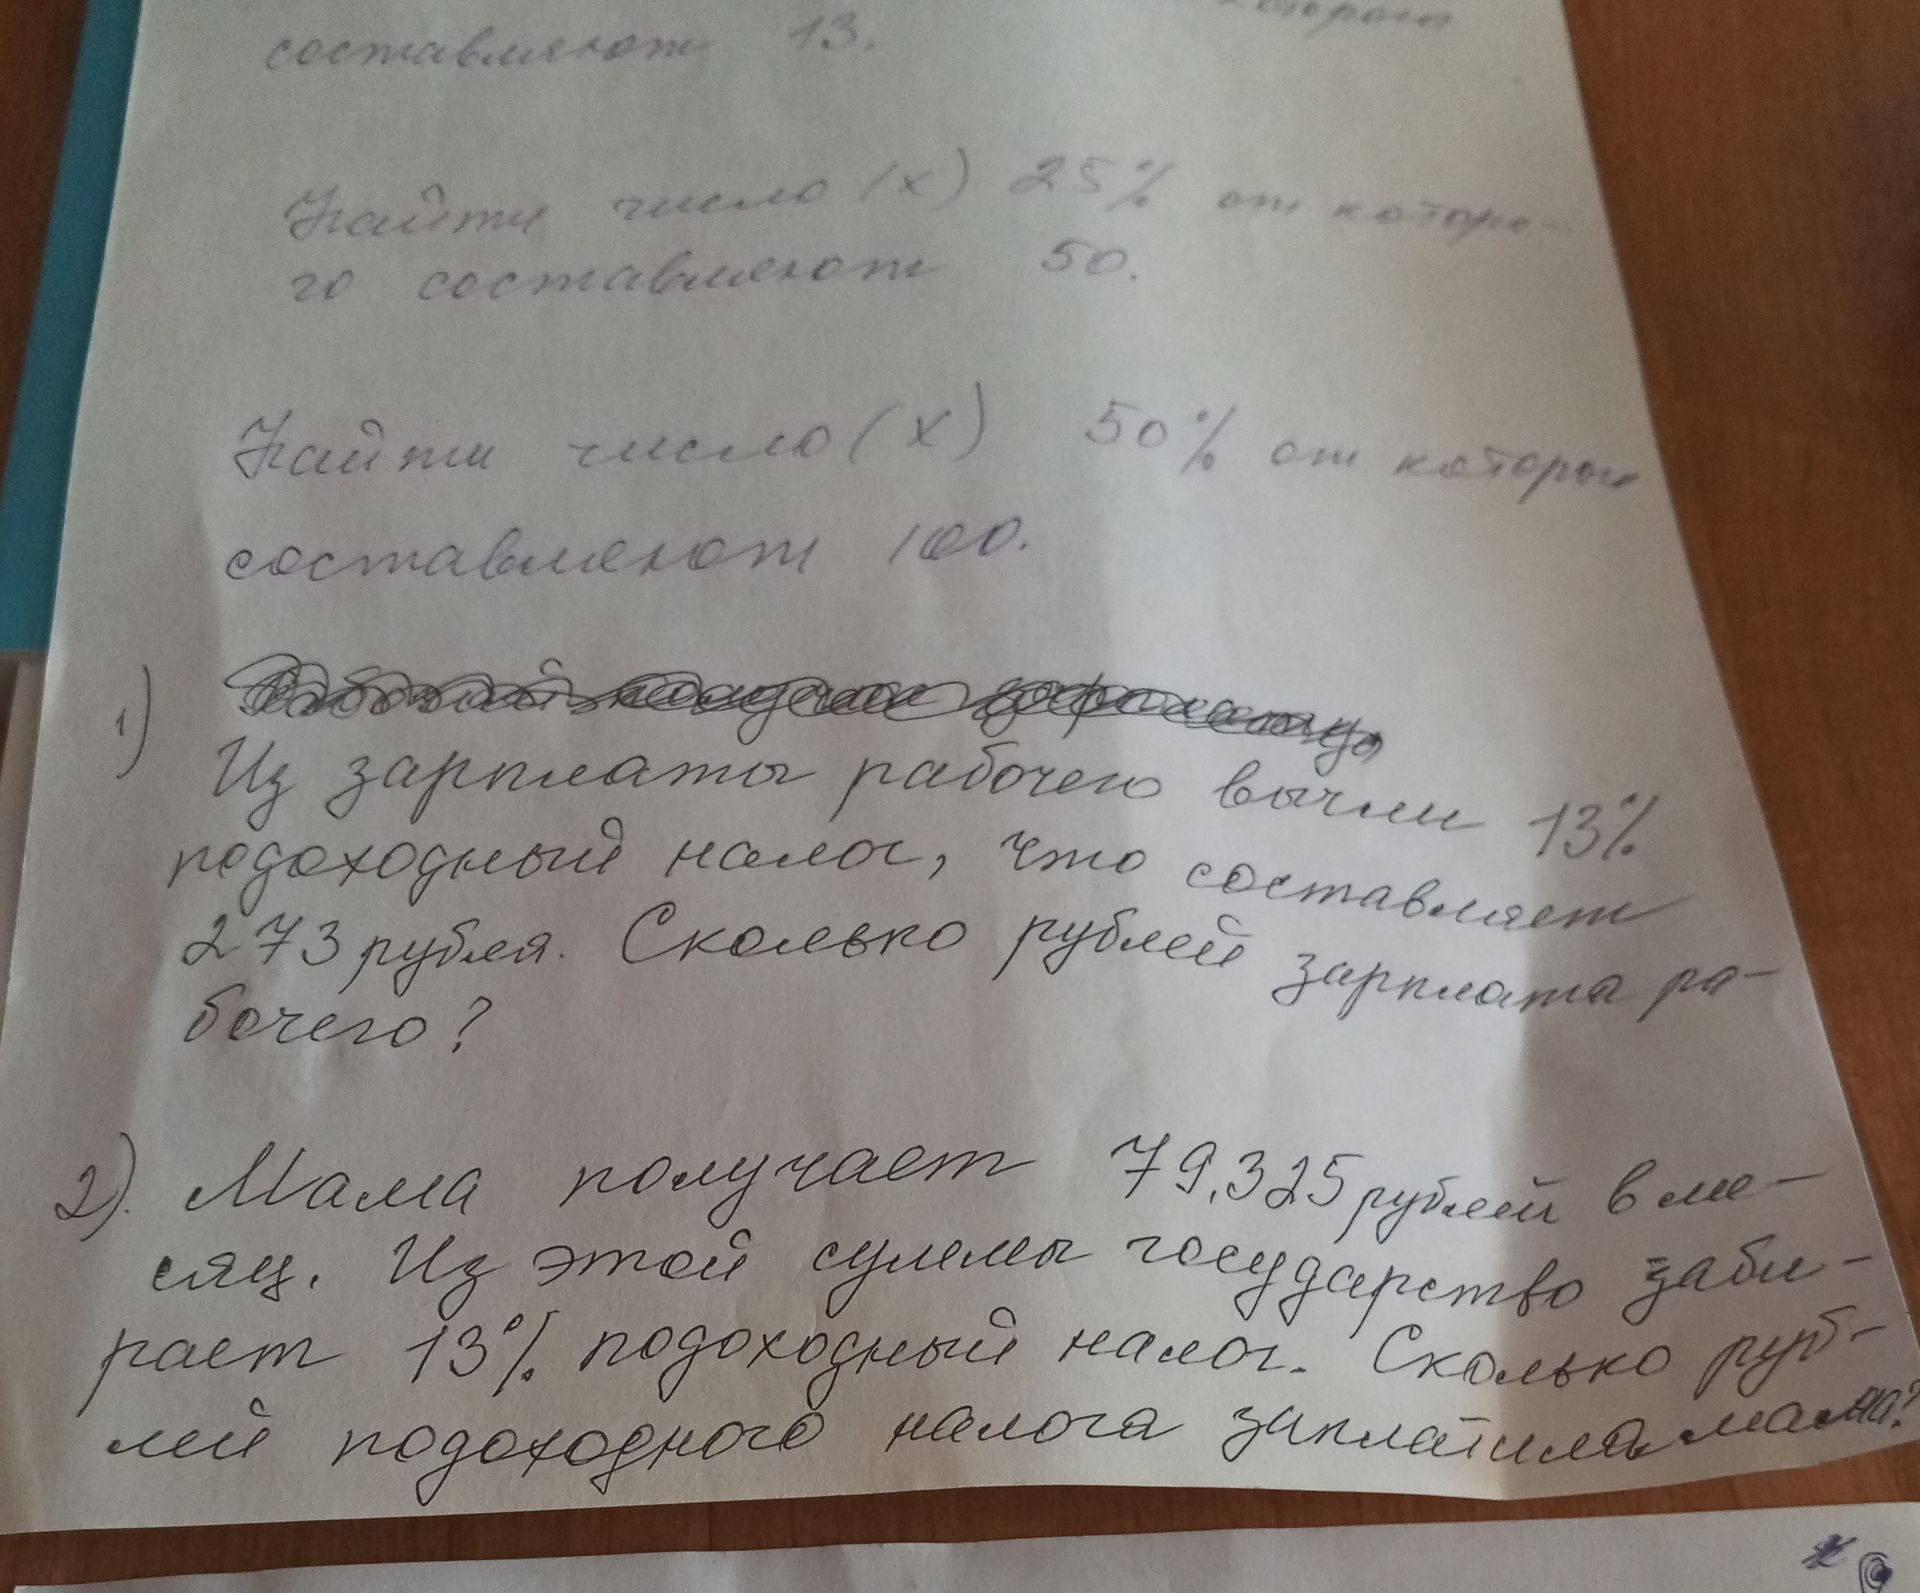 которого
составляют 13.
Найти число (х) 25% от которо-
го составляют 50.
Найти число (х) 50% от которого
составляют 100.
1)
Из зарплаты рабочего вычли 13%
подоходный налог, что составляет
273 рубля. Сколько рублей зарплата ра-
бочего?
2). Мама получает 79.325 рублей в ме-
сяц. Из этой суммы государство заби-
рает 13% подоходный налог. Сколько руб-
лей подоходного налога заплатила мама?